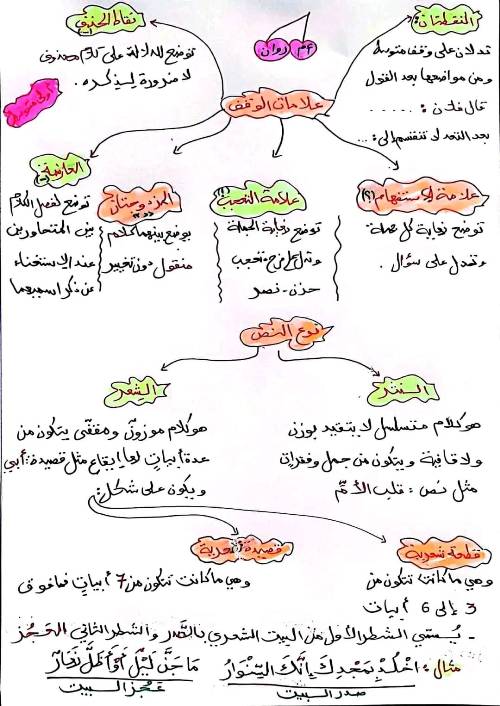 النقطتان:
تدلان على وقف متوسط
ومن مواضعها بعد القول
قال فلان : .....
بعد التعداد تنقسم إلى: ...
أم روان
نقاط الحذف
توضع للدلالة على كلام محذوف
لا ضرورة لذكره.
أولى متوسط
علامات الوقف
علامة الاستفهام (؟)
توضع نهاية كل جملة
وتدل على سؤال.
علامة التعجب (!)
توضع نهاية الجملة
وتدل على فرح - تعجب
حزن - نصر
المزدوجتان
يوضع بينهما كلام
منقول دون تغيير
العارضة (-)
توضع لفصل الكلام
بين المتحاورين
عند الاستغناء
عن ذكر اسميهما
نوع النص
النثر
هو كلام متسلسل لا يتقيد بوزن
ولا قافية ويتكون من جمل وفقرات
مثل نص: قلب الأم
الشعر
هو كلام موزون ومقفى يتكون من
عدة أبيات لها إيقاع مثل قصيدة: أبي
ويكون على شكل:
قطعة شعرية
وهي ما كانت تتكون من
3 إلى 6 أبيات
قصيدة شعرية
وهي ما كانت تتكون من 7 أبيات فما فوق
- يسمى الشطر الأول من البيت الشعري بالصدر والشطر الثاني العجز
مثال: احلم بمجدك إنك النوار ما جن ليل أو أطل نهار
صدر البيت عجز البيت